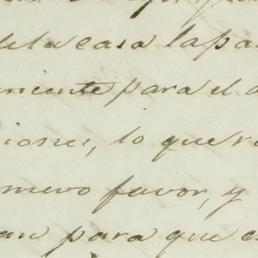 de la casa la pa
niente para el d
iones, lo que r
nuevo favor, y
an para que e